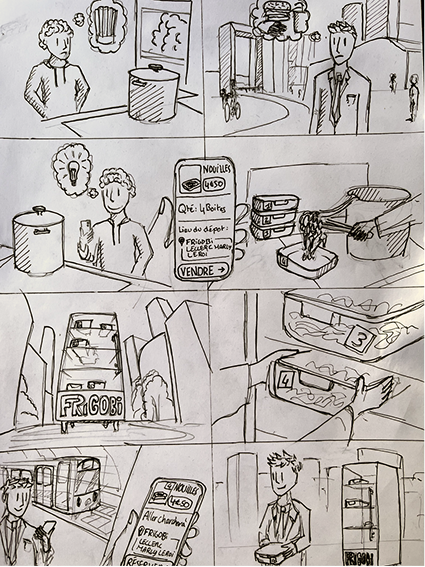 NOUILLES
4€50
Qté: 4 Boites
Lieu du dépot:
FRIGOBI
LECLERC MARLY
LEROI
VENDRE →
FRIGOBI
3
4
NOUILLES
4€50
Aller chercher à
FRIGOBI
LECLERC
MARLY LEROI
RÉSERVER
FRIGOBI